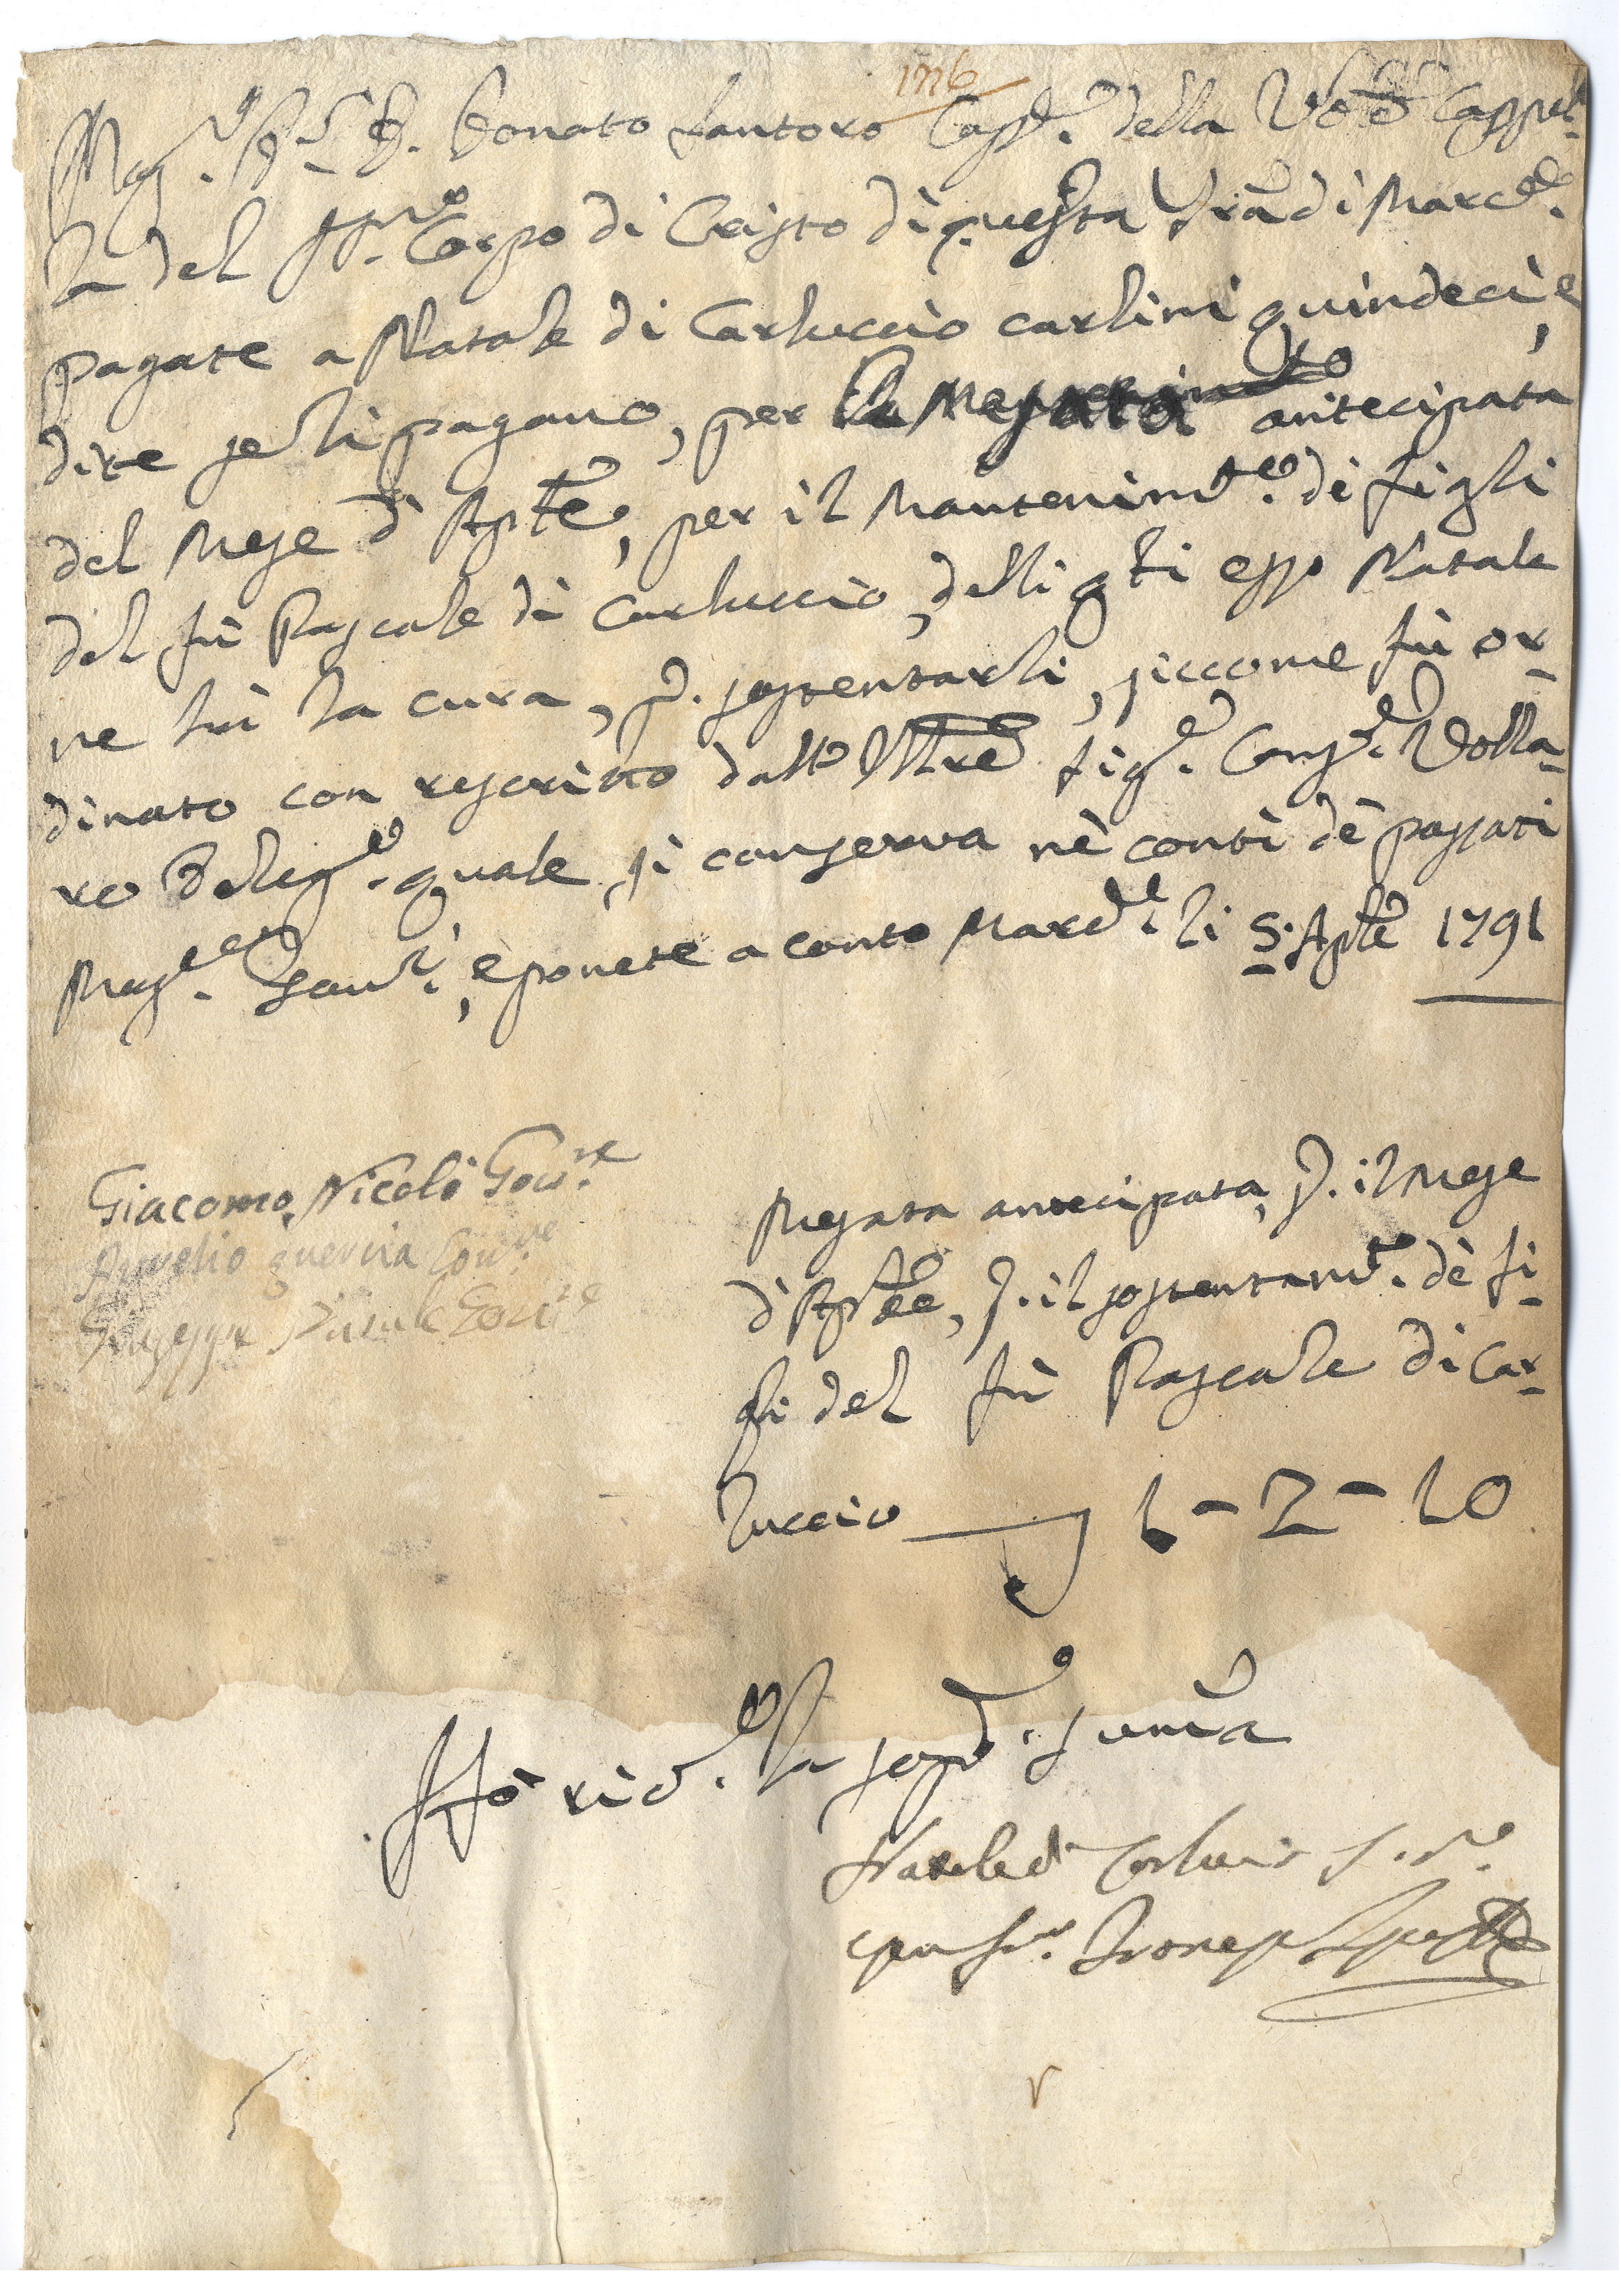 1776
Mag.co Donato Santoro Cass.re della Ven.e Cappel-
la del SS.mo Corpo di Cristo di questa Tra di Marc.de
pagate a Natale di Carluccio carlini quindeci, e
dite se li pagano, per la mesata antecipata
del Mese d'Aple, per il Mantenim.to dè figli
del fù Pascale di Carluccio, delli qti esso Natale
ne hà la cura, p. sostentarli, siccome fù or-
dinato con rescritto dall' Illre Sig.e Cons.e Volla-
ro Deleg.o quale si conserva nè conti dè passati
Mag.ci Gov.ri, e ponete a conto Marc.de li 5. Aple 1791
Giacomo Nicolò Gov.re
Aurelio quercia Gov.re
Giuseppe Gov.re
Mesata antecipata, p. il Mese
d'Aple, p. il sostentam.to dè fi-
gli del fù Pascale di Car-
luccio 1 - 2 - 10
Hò ric.o la sopd.a suma
Natale di Carluccio